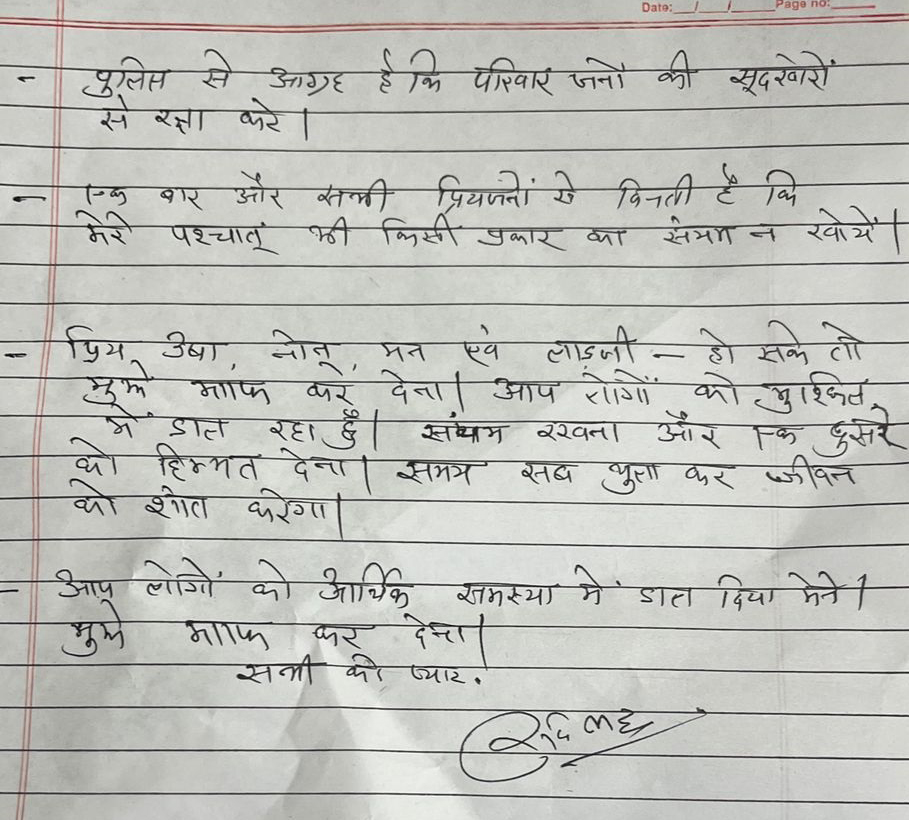 Date: __/__/____ Page no: _____
- पुलिस से आग्रह है कि परिवार जनों की सूदखोरों
से रक्षा करे |
- एक बार और सभी प्रियजनों से विनती है कि
मेरे पश्चात् भी किसी प्रकार का संयम न खोयें |
- प्रिय उषा, नोनू, मन एवं लाड़ली - हो सके तो
मुझे माफ कर देना | आप लोगों को मुश्किल
में डाल रहा हूँ | संयम रखना और एक दुसरे
को हिम्मत देना | समय सब भुला कर जीवन
को शांत करेगा |
- आप लोगों को आर्थिक समस्या में डाल दिया मेने |
मुझे माफ कर देना |
सभी को प्यार.